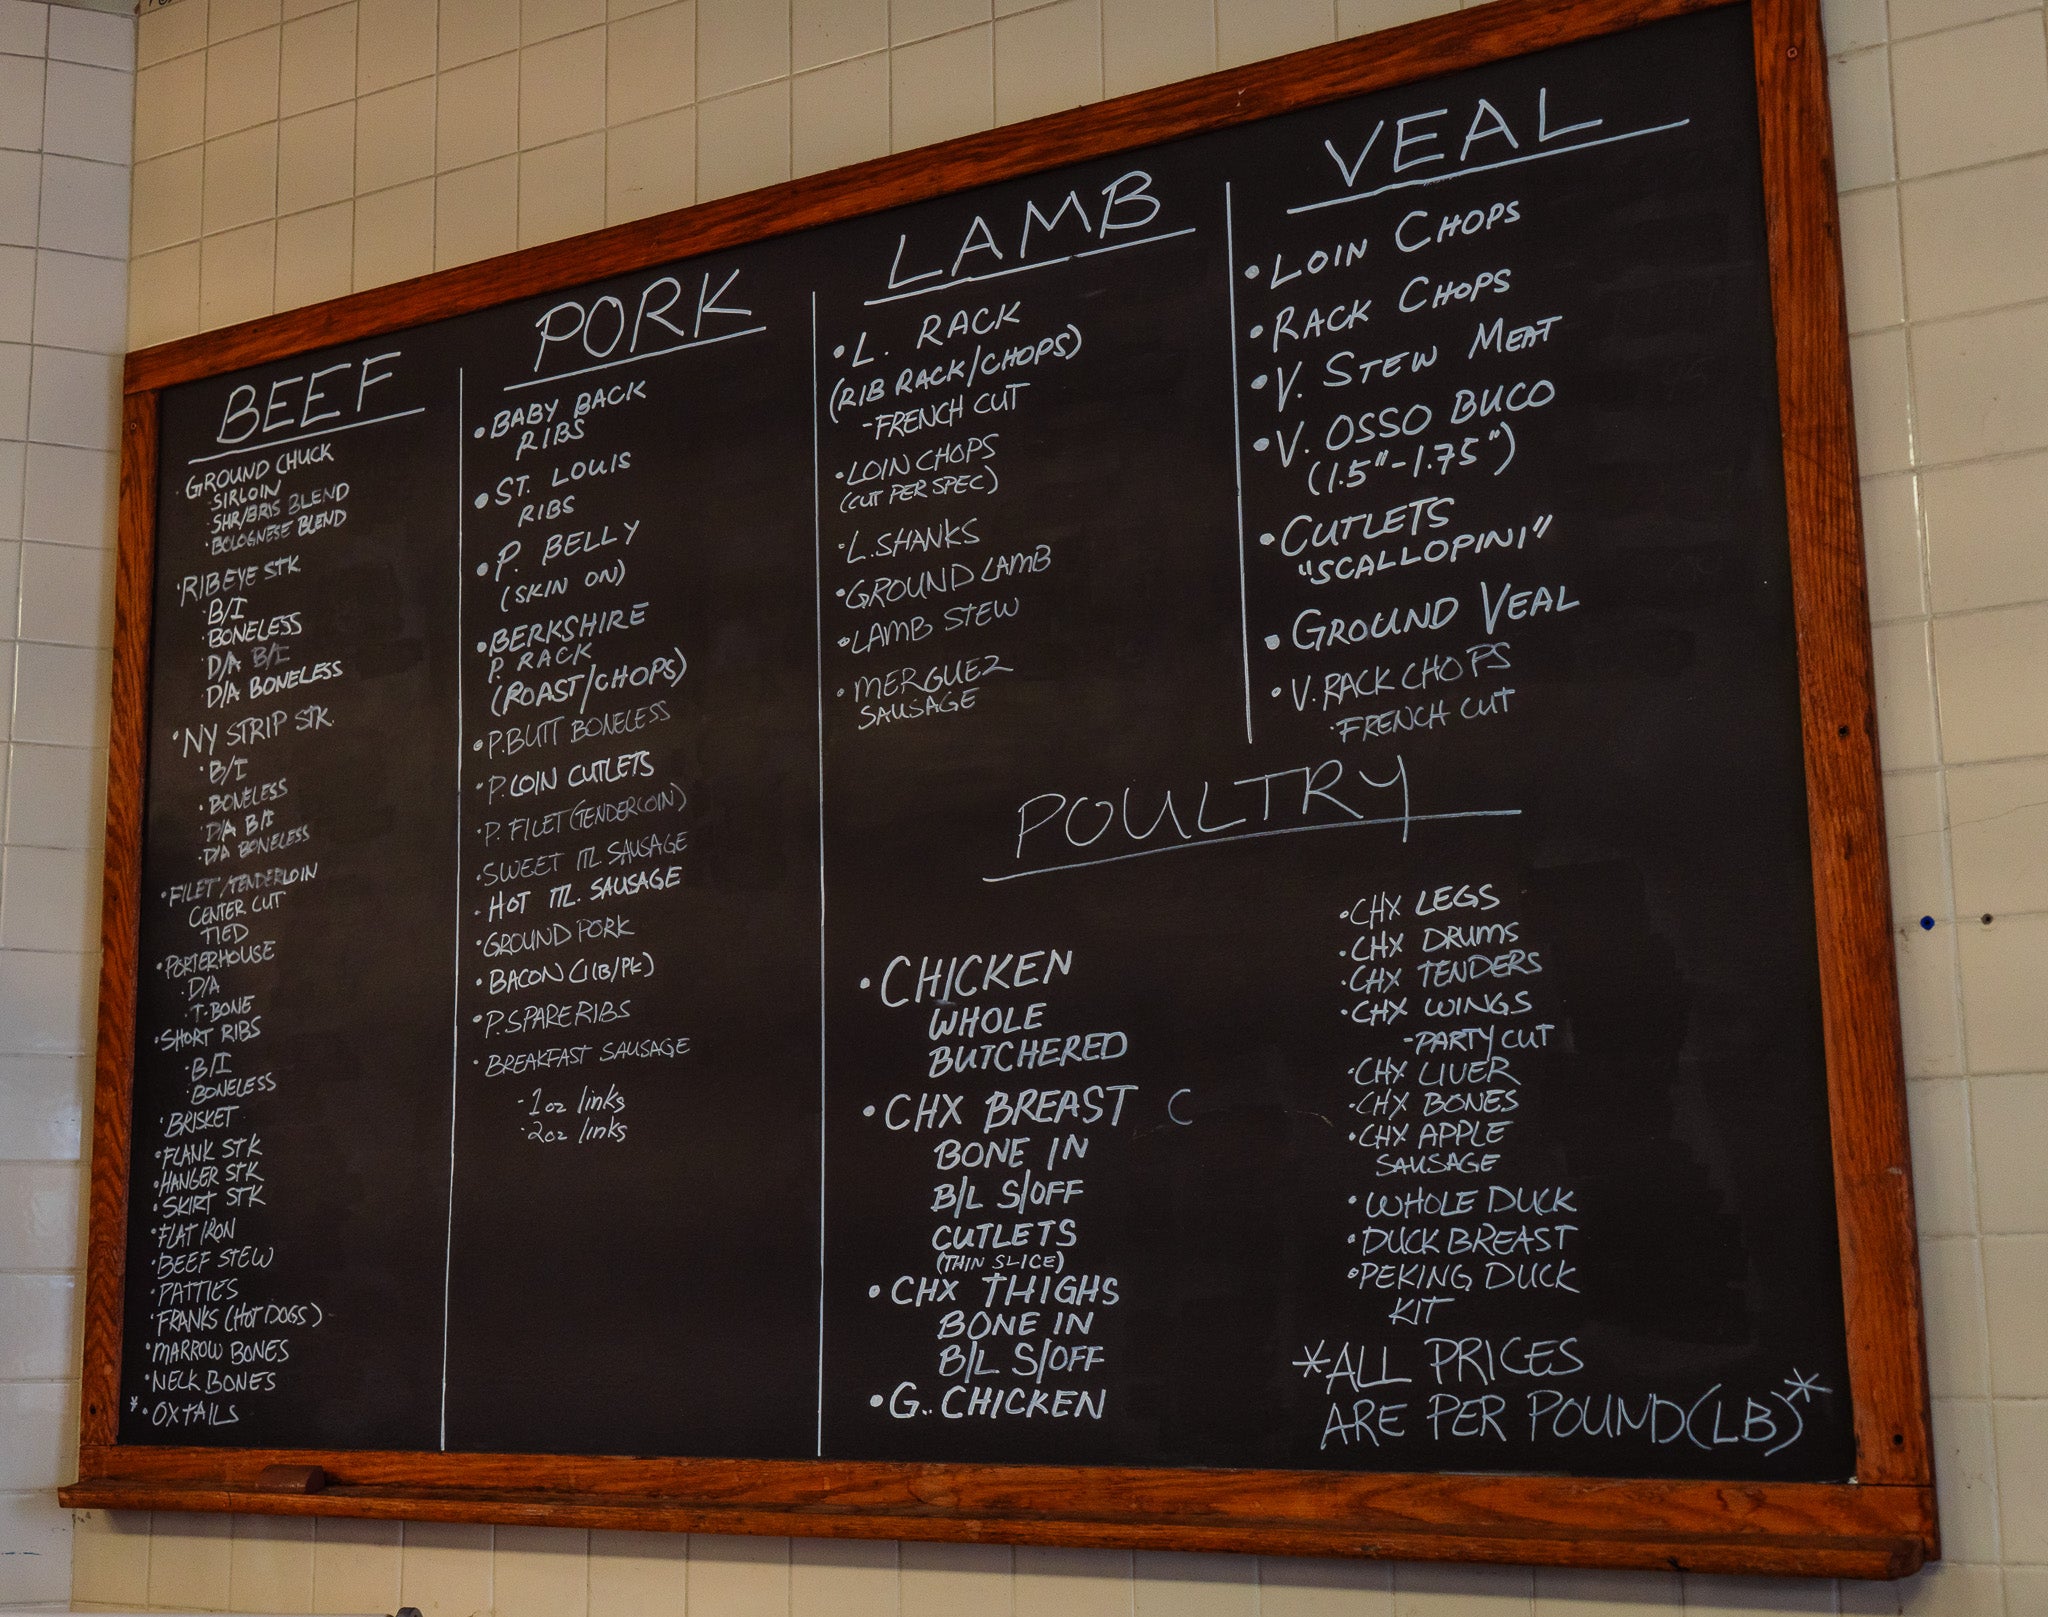 BEEF
· GROUND CHUCK
· SIRLOIN
· SHR/BRIS BLEND
· BOLOGNESE BLEND
· RIBEYE STK
· B/I
· BONELESS
· D/A B/I
· D/A BONELESS
· NY STRIP STK.
· B/I
· BONELESS
· D/A B/I
· D/A BONELESS
· FILET/TENDERLOIN
CENTER CUT
TIED
· PORTERHOUSE
· D/A
· T-BONE
· SHORT RIBS
· B/I
· BONELESS
· BRISKET
· FLANK STK
· HANGER STK
· SKIRT STK
· FLAT IRON
· BEEF STEW
· PATTIES
· FRANKS (HOT DOGS)
· MARROW BONES
· NECK BONES
* · OXTAILS
PORK
· BABY BACK
RIBS
· ST. LOUIS
RIBS
· P. BELLY
(SKIN ON)
· BERKSHIRE
P. RACK
(ROAST/CHOPS)
· P. BUTT BONELESS
· P. LOIN CUTLETS
· P. FILET (TENDERLOIN)
· SWEET ITL. SAUSAGE
· HOT ITL. SAUSAGE
· GROUND PORK
· BACON (1LB/PK)
· P. SPARERIBS
· BREAKFAST SAUSAGE
- 1oz links
· 2oz links
LAMB
· L. RACK
(RIB RACK/CHOPS)
- FRENCH CUT
· LOIN CHOPS
(CUT PER SPEC)
· L. SHANKS
· GROUND LAMB
· LAMB STEW
· MERGUEZ
SAUSAGE
VEAL
· LOIN CHOPS
· RACK CHOPS
· V. STEW MEAT
· V. OSSO BUCO
(1.5"-1.75")
· CUTLETS
"SCALLOPINI"
· GROUND VEAL
· V. RACK CHOPS
· FRENCH CUT
POULTRY
· CHICKEN
WHOLE
BUTCHERED
· CHX BREAST C
BONE IN
B/L S/OFF
CUTLETS
(THIN SLICE)
· CHX THIGHS
BONE IN
B/L S/OFF
· G.. CHICKEN
· CHX LEGS
· CHX DRUMS
· CHX TENDERS
· CHX WINGS
- PARTY CUT
· CHX LIVER
· CHX BONES
· CHX APPLE
SAUSAGE
· WHOLE DUCK
· DUCK BREAST
· PEKING DUCK
KIT
*ALL PRICES
ARE PER POUND (LB)*